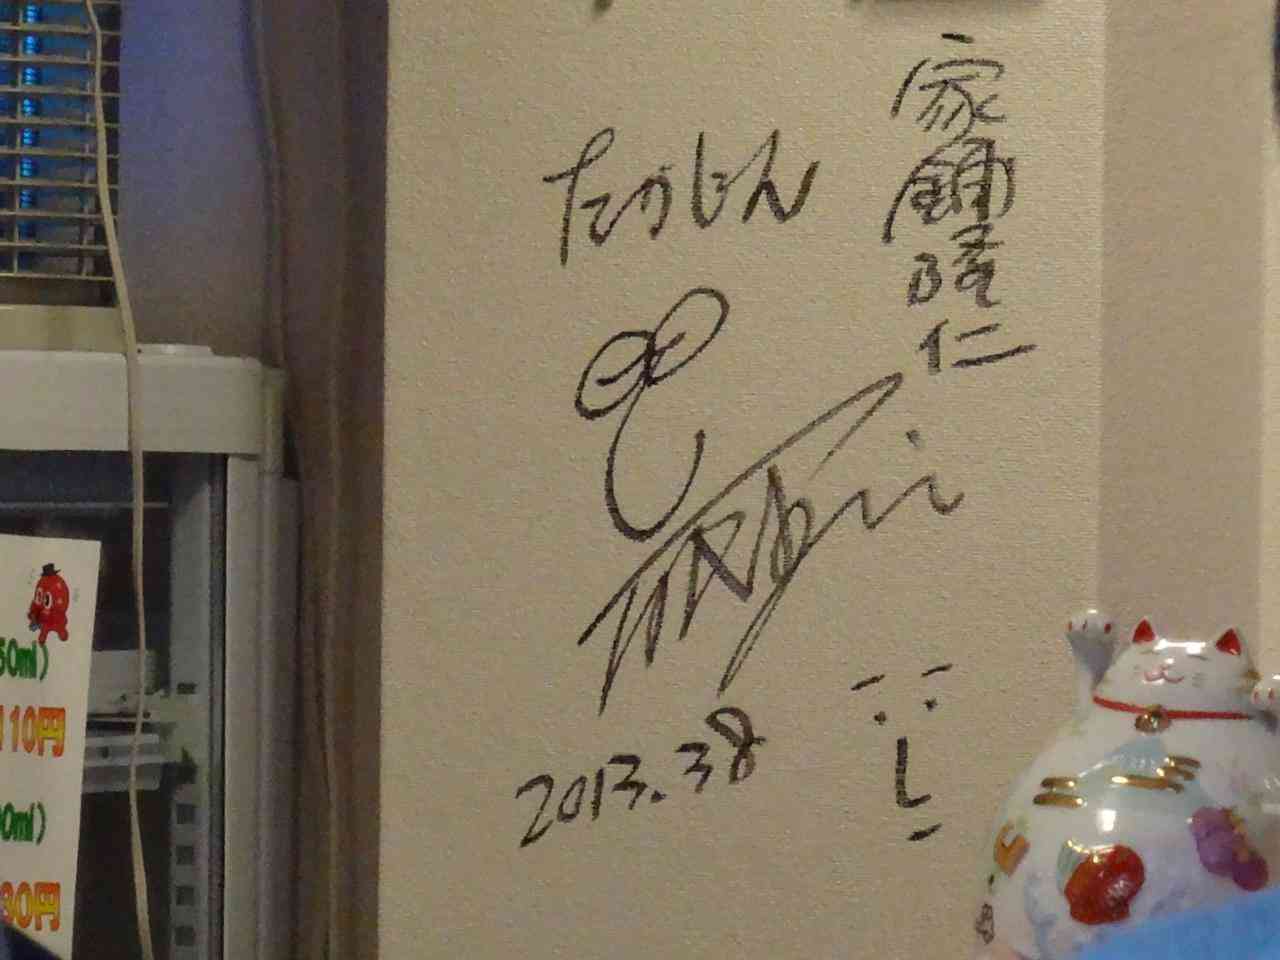 家鋪隆仁
たかじん
2013.3.8
50ml)
110円
0ml)
30円